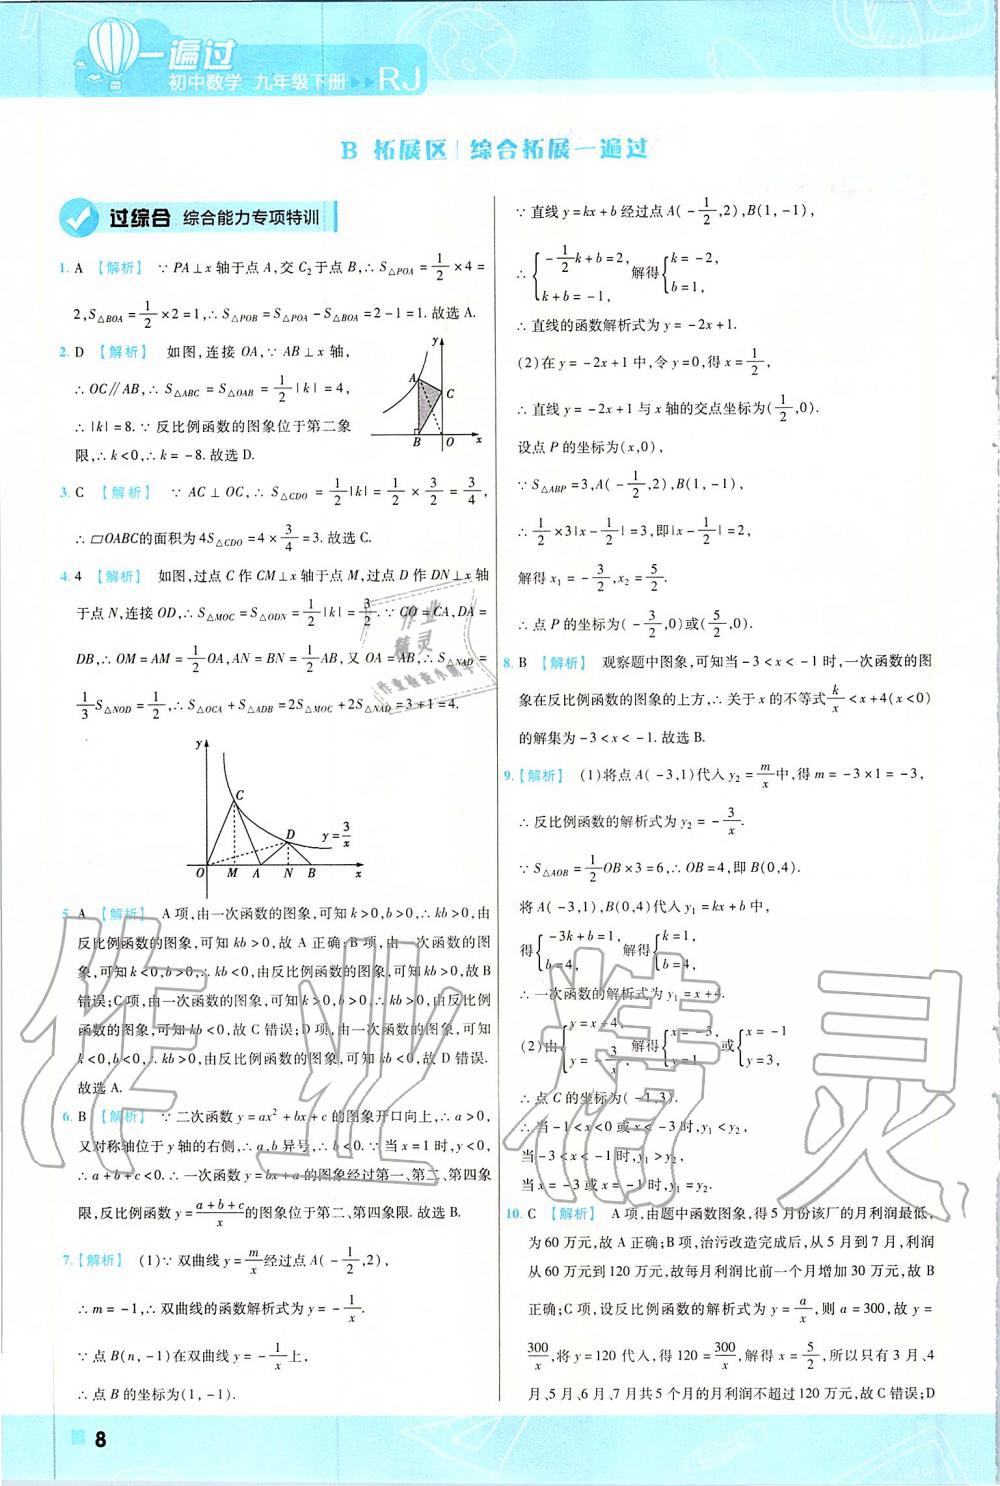 一遍过
初中数学 九年级下册 ▶▶ RJ
B 拓展区 | 综合拓展一遍过
过综合 综合能力专项特训
1. A 【解析】 ∵PA⊥x轴于点A,交C₂于点B,∴S△POA=1/2×4=
2,S△BOA=1/2×2=1,∴S△POB=S△POA-S△BOA=2-1=1.故选A.
2. D 【解析】 如图,连接OA,∵AB⊥x轴,
∴OC∥AB,∴S△ABC=S△OAB=1/2|k|=4,
∴|k|=8.∵反比例函数的图象位于第二象
限,∴k<0,∴k=-8.故选D.
y
A
C
B O x
3. C 【解析】 ∵AC⊥OC,∴S△CDO=1/2|k|=1/2×3/2=3/4,
∴▱OABC的面积为4S△CDO=4×3/4=3.故选C.
4. 4 【解析】 如图,过点C作CM⊥x轴于点M,过点D作DN⊥x轴
于点N,连接OD,∴S△MOC=S△ODN=1/2|k|=3/2.∵CO=CA,DA=
DB,∴OM=AM=1/2OA,AN=BN=1/2AB,又OA=AB,∴S△NAD=
1/3S△NOD=1/2,∴S△OCA+S△ADB=2S△MOC+2S△NAD=3+1=4.
y
C
D
y=3/x
O M A N B x
5. A 【解析】 A项,由一次函数的图象,可知k>0,b>0,∴kb>0,由
反比例函数的图象,可知kb>0,故A正确;B项,由一次函数的图
象,可知k<0,b>0,∴kb<0,由反比例函数的图象,可知kb>0,故B
错误;C项,由一次函数的图象,可知k>0,b>0,∴kb>0,由反比例
函数的图象,可知kb<0,故C错误;D项,由一次函数的图象,可知
k<0,b<0,∴kb>0,由反比例函数的图象,可知kb<0,故D错误.
故选A.
6. B 【解析】 ∵二次函数y=ax²+bx+c的图象开口向上,∴a>0,
又对称轴位于y轴的右侧,∴a,b异号,∴b<0.∵当x=1时,y<0,
∴a+b+c<0.∴一次函数y=bx+a的图象经过第一、第二、第四象
限,反比例函数y=(a+b+c)/x的图象位于第二、第四象限.故选B.
7.【解析】 (1)∵双曲线y=m/x经过点A(-1/2,2),
∴m=-1,∴双曲线的函数解析式为y=-1/x.
∵点B(n,-1)在双曲线y=-1/x上,
∴点B的坐标为(1,-1).
∵直线y=kx+b经过点A(-1/2,2),B(1,-1),
∴{-1/2k+b=2, k+b=-1, 解得{k=-2, b=1,
∴直线的函数解析式为y=-2x+1.
(2)在y=-2x+1中,令y=0,得x=1/2,
∴直线y=-2x+1与x轴的交点坐标为(1/2,0).
设点P的坐标为(x,0),
∵S△ABP=3,A(-1/2,2),B(1,-1),
∴1/2×3|x-1/2|=3,即|x-1/2|=2,
解得x₁=-3/2,x₂=5/2.
∴点P的坐标为(-3/2,0)或(5/2,0).
8. B 【解析】 观察题中图象,可知当-3<x<-1时,一次函数的图
象在反比例函数的图象的上方,∴关于x的不等式k/x<x+4(x<0)
的解集为-3<x<-1.故选B.
9.【解析】 (1)将点A(-3,1)代入y₂=m/x中,得m=-3×1=-3,
∴反比例函数的解析式为y₂=-3/x.
∵S△AOB=1/2OB×3=6,∴OB=4,即B(0,4).
将A(-3,1),B(0,4)代入y₁=kx+b中,
得{-3k+b=1, b=4, 解得{k=1, b=4,
∴一次函数的解析式为y₁=x+4.
(2)由{y=x+4, y=-3/x, 解得{x=-3, y=1, 或{x=-1 y=3,
∴点C的坐标为(-1,3).
∴当-1<x<0或x<-3时,y₁<y₂,
当-3<x<-1时,y₁>y₂,
当x=-3或x=-1时,y₁=y₂.
10. C 【解析】 A项,由题中函数图象,得5月份该厂的月利润最低,
为60万元,故A正确;B项,治污改造完成后,从5月到7月,利润
从60万元到120万元,故每月利润比前一个月增加30万元,故B
正确;C项,设反比例函数的解析式为y=a/x,则a=300,故y=
300/x,将y=120代入,得120=300/x,解得x=5/2,所以只有3月、4
月、5月、6月、7月共5个月的月利润不超过120万元,故C错误;D
8
作业
精灵
作业检查小助手
作业精灵